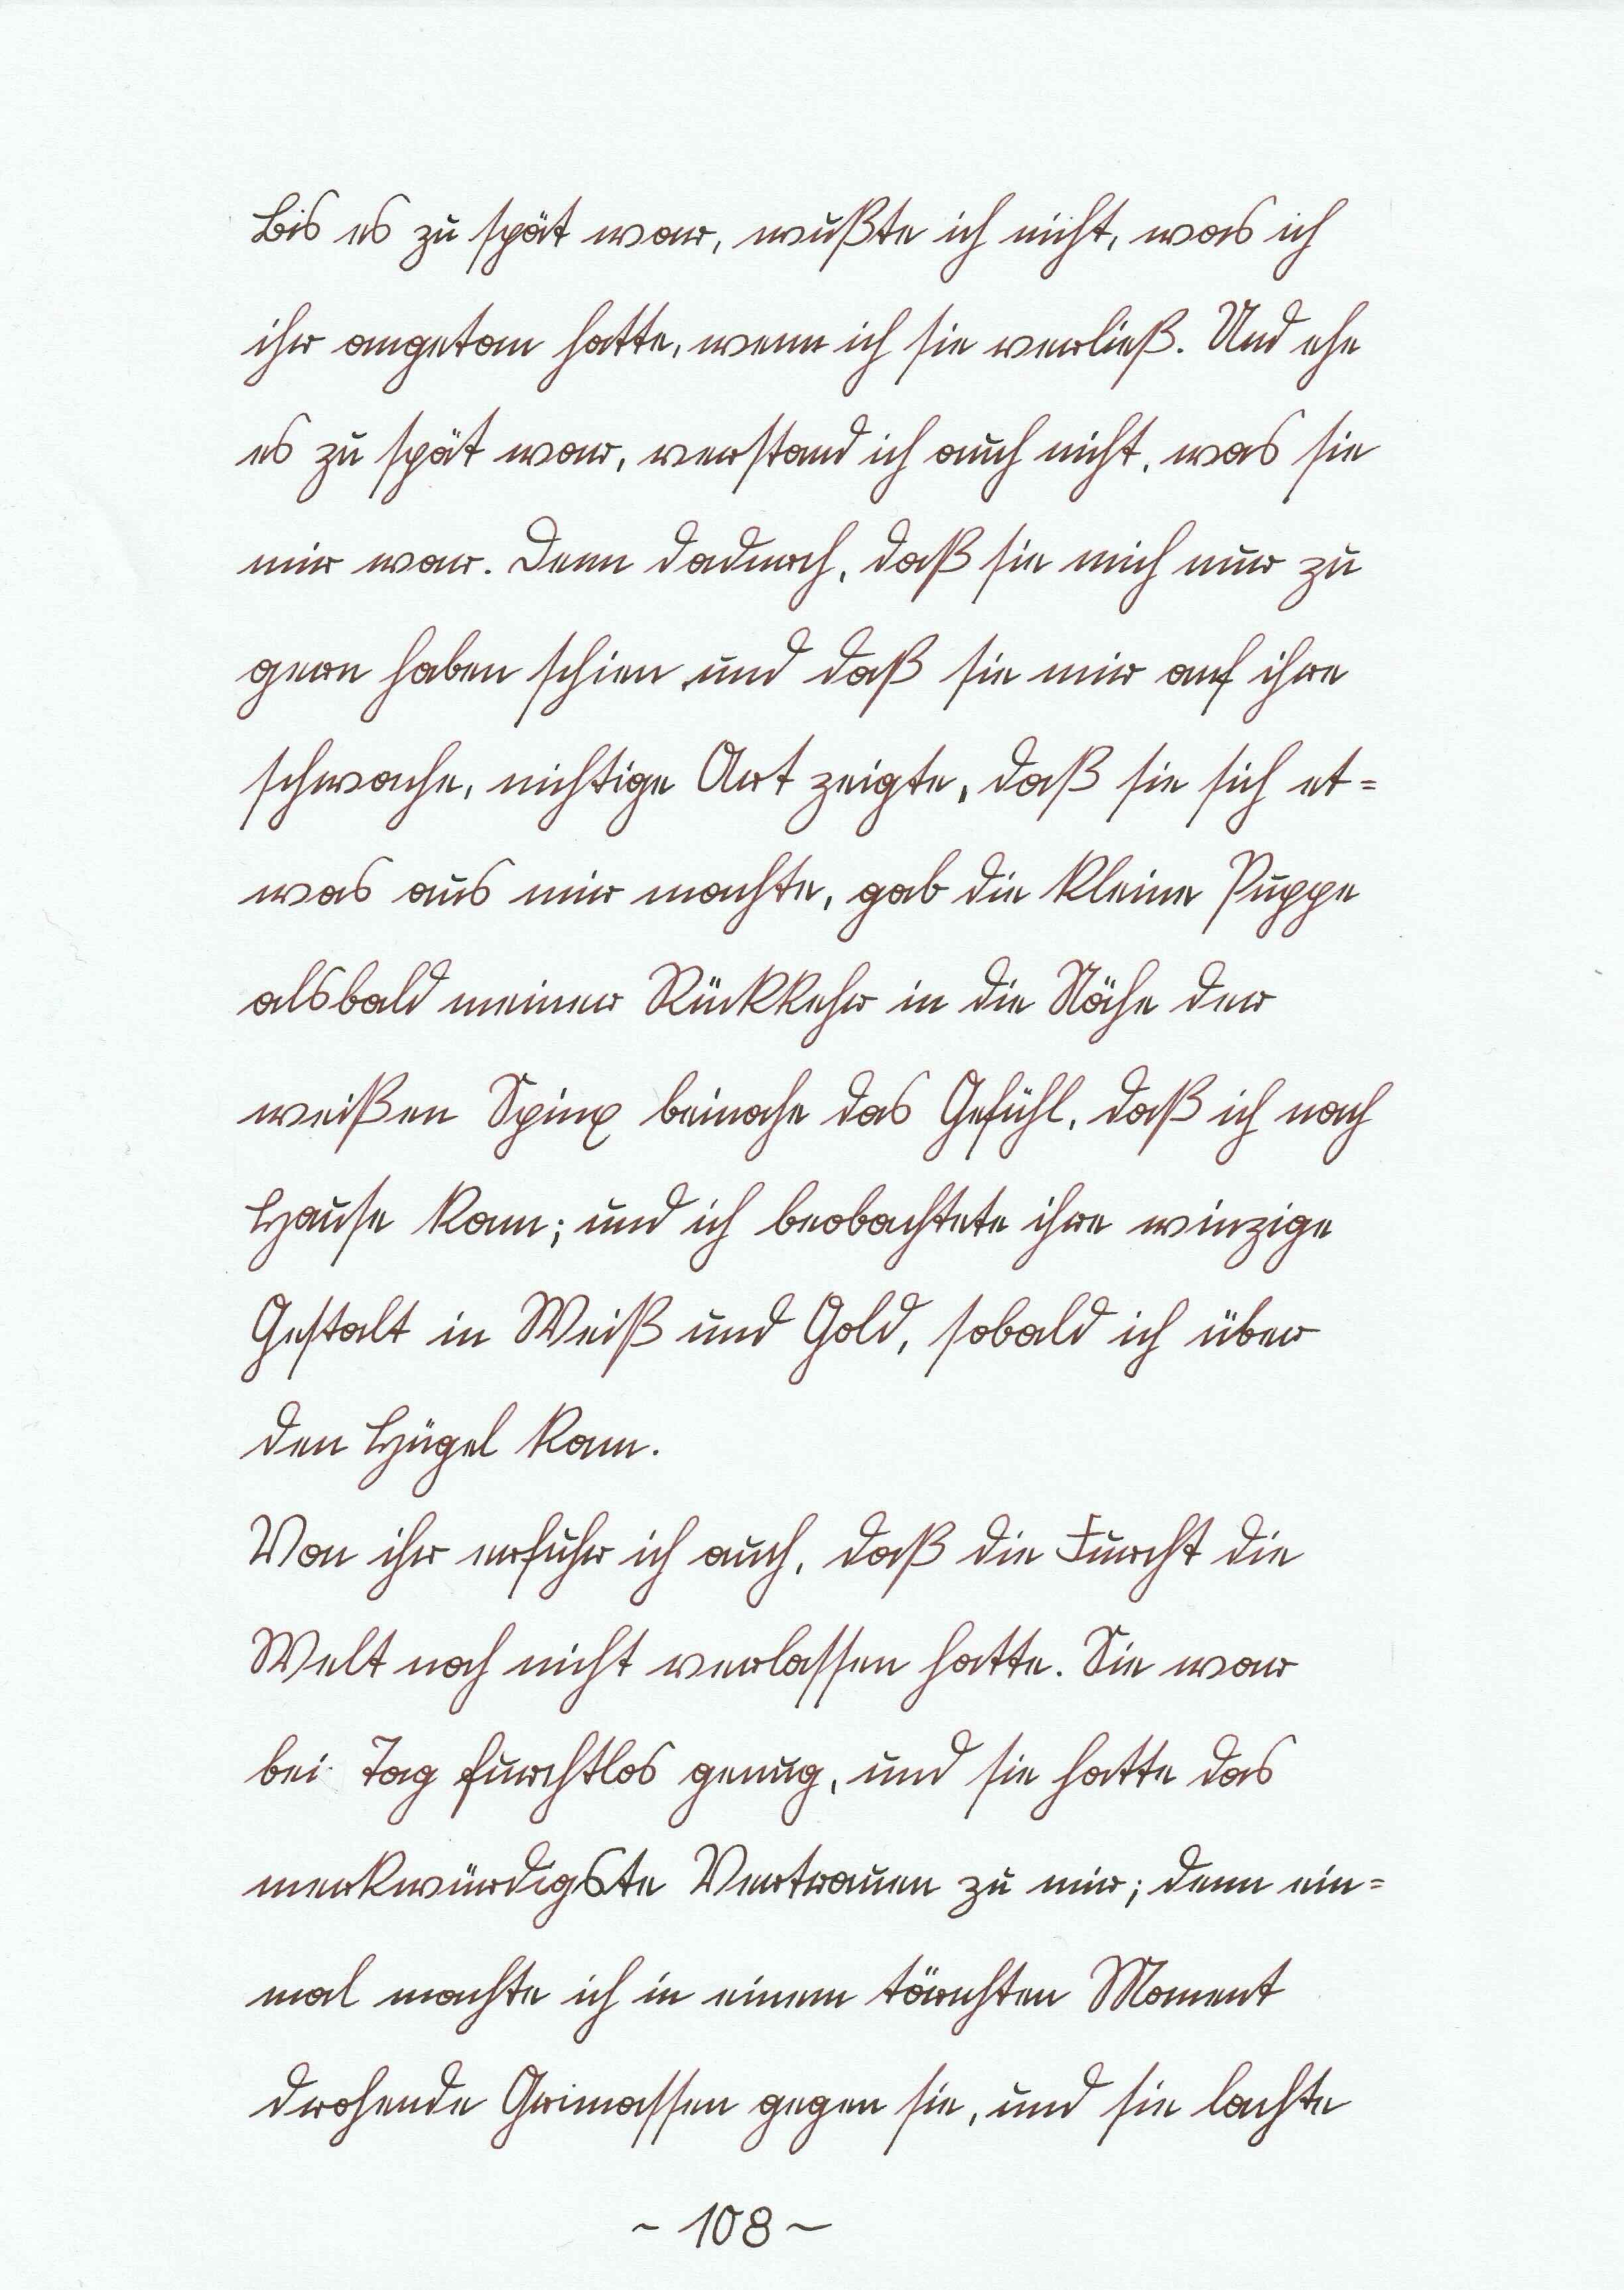 Bis es zu spät war, wußte ich nicht, was ich
ihr angetan hatte, wenn ich sie verließ. Und ehe
es zu spät war, verstand ich auch nicht, was sie
mir war. Denn dadurch, daß sie mich nur zu
gern haben schien und daß sie mir auf ihre
schwache, nichtige Art zeigte, daß sie sich et=
was aus mir machte, gab die kleine Puppe
alsbald meiner Rückkehr in die Nähe der
weißen Spinx beinahe das Gefühl, daß ich nach
Hause kam; und ich beobachtete ihre winzige
Gestalt in Weiß und Gold, sobald ich über
den Hügel kam.
Von ihr erfuhr ich auch, daß die Furcht die
Welt noch nicht verlassen hatte. Sie war
bei Tag furchtlos genug, und sie hatte das
merkwürdigste Vertrauen zu mir; denn ein=
mal machte ich in einem törichten Moment
drohende Grimassen gegen sie, und sie lachte
~ 108 ~